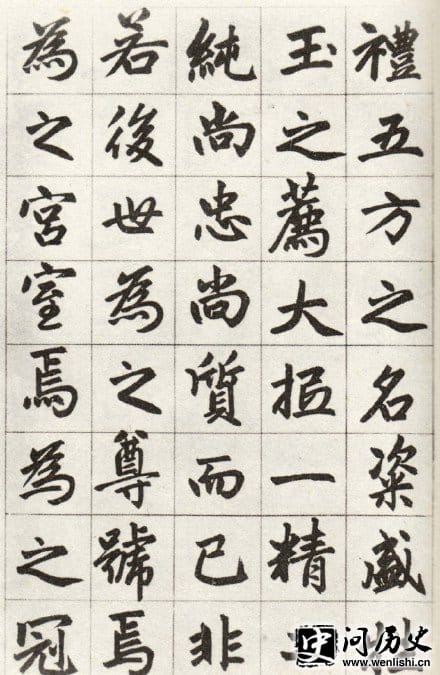 禮五方之名粢盛
玉之薦大抵一精
純尚忠尚質而已非
若後世為之尊號焉
為之宮室焉為之冠
史问历史
www.wenlishi.cn